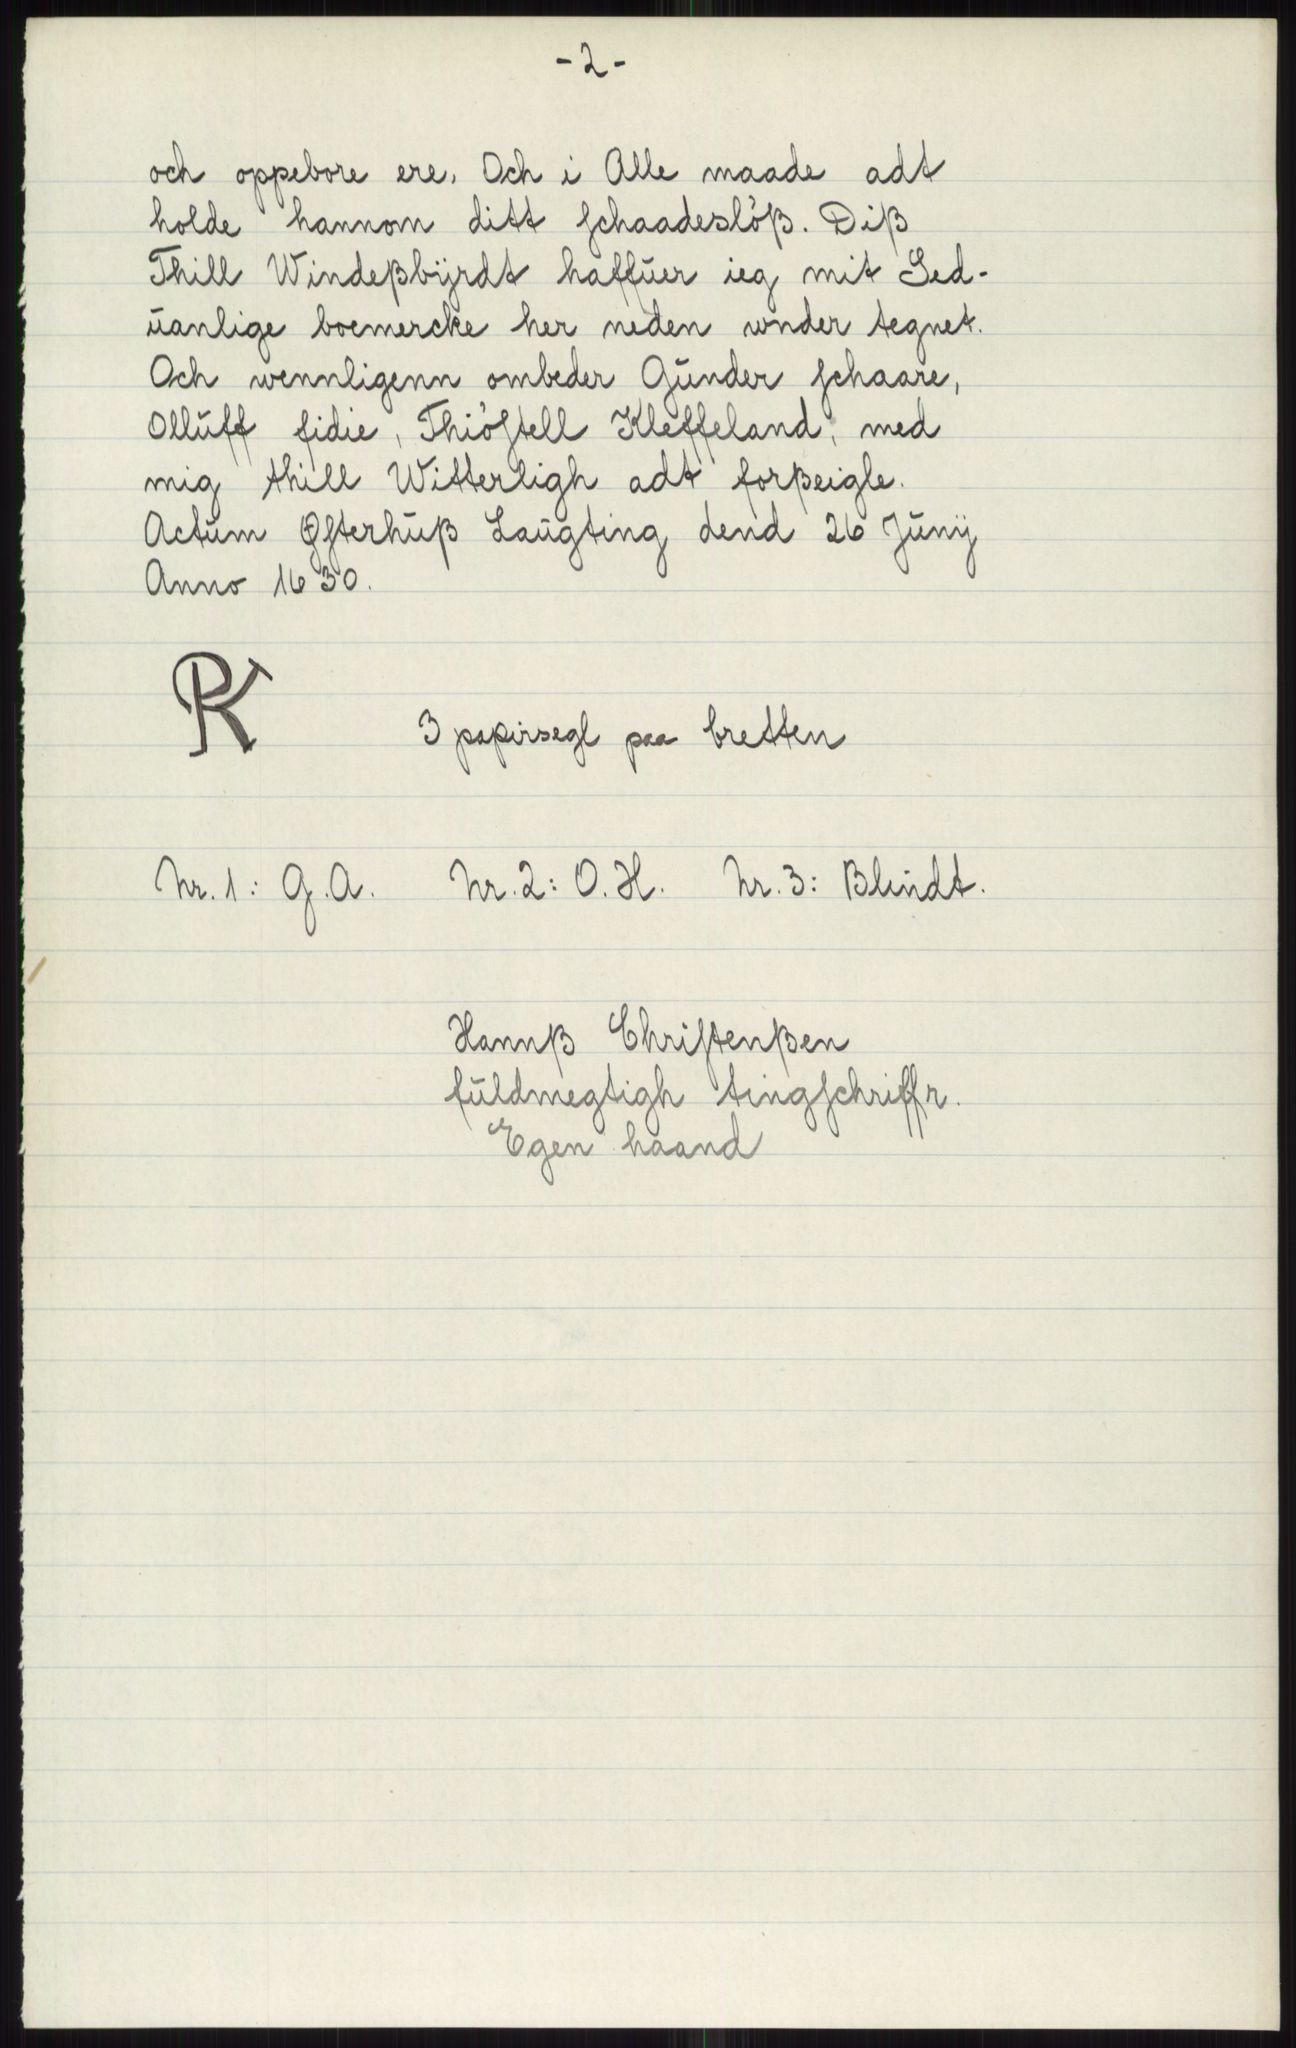 -2-
och oppebore ere. Och i Alle maade adt
holde hannom ditt schaadesløß. Diß
Thill Windeßbÿrdt haffŭer ieg mit Sed-
ŭanlige boemercke her neden wnder tegnet.
Och wennligenn ombeder Gŭnder schaare,
Ollŭff fidie, Thiøstell Kleffeland, med
mig thill Witterligh adt forßeigle.
Actŭm Østerhŭß Laŭgting dend 26 Jŭnÿ
Anno 1630.
3 papirsegl paa bretten
Nr. 1: G.A. Nr. 2: O.H. Nr. 3: Blindt.
Hannß Christenßen
fŭldmegtigh tingschriffr.
Egen haand